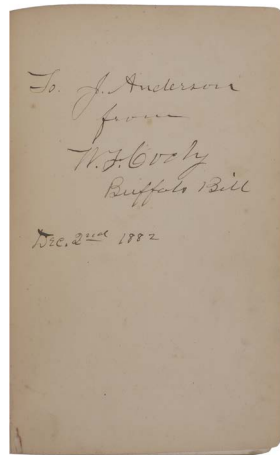 To. J. Anderson
from
W. F. Cody
Buffalo Bill
Dec. 2nd 1882